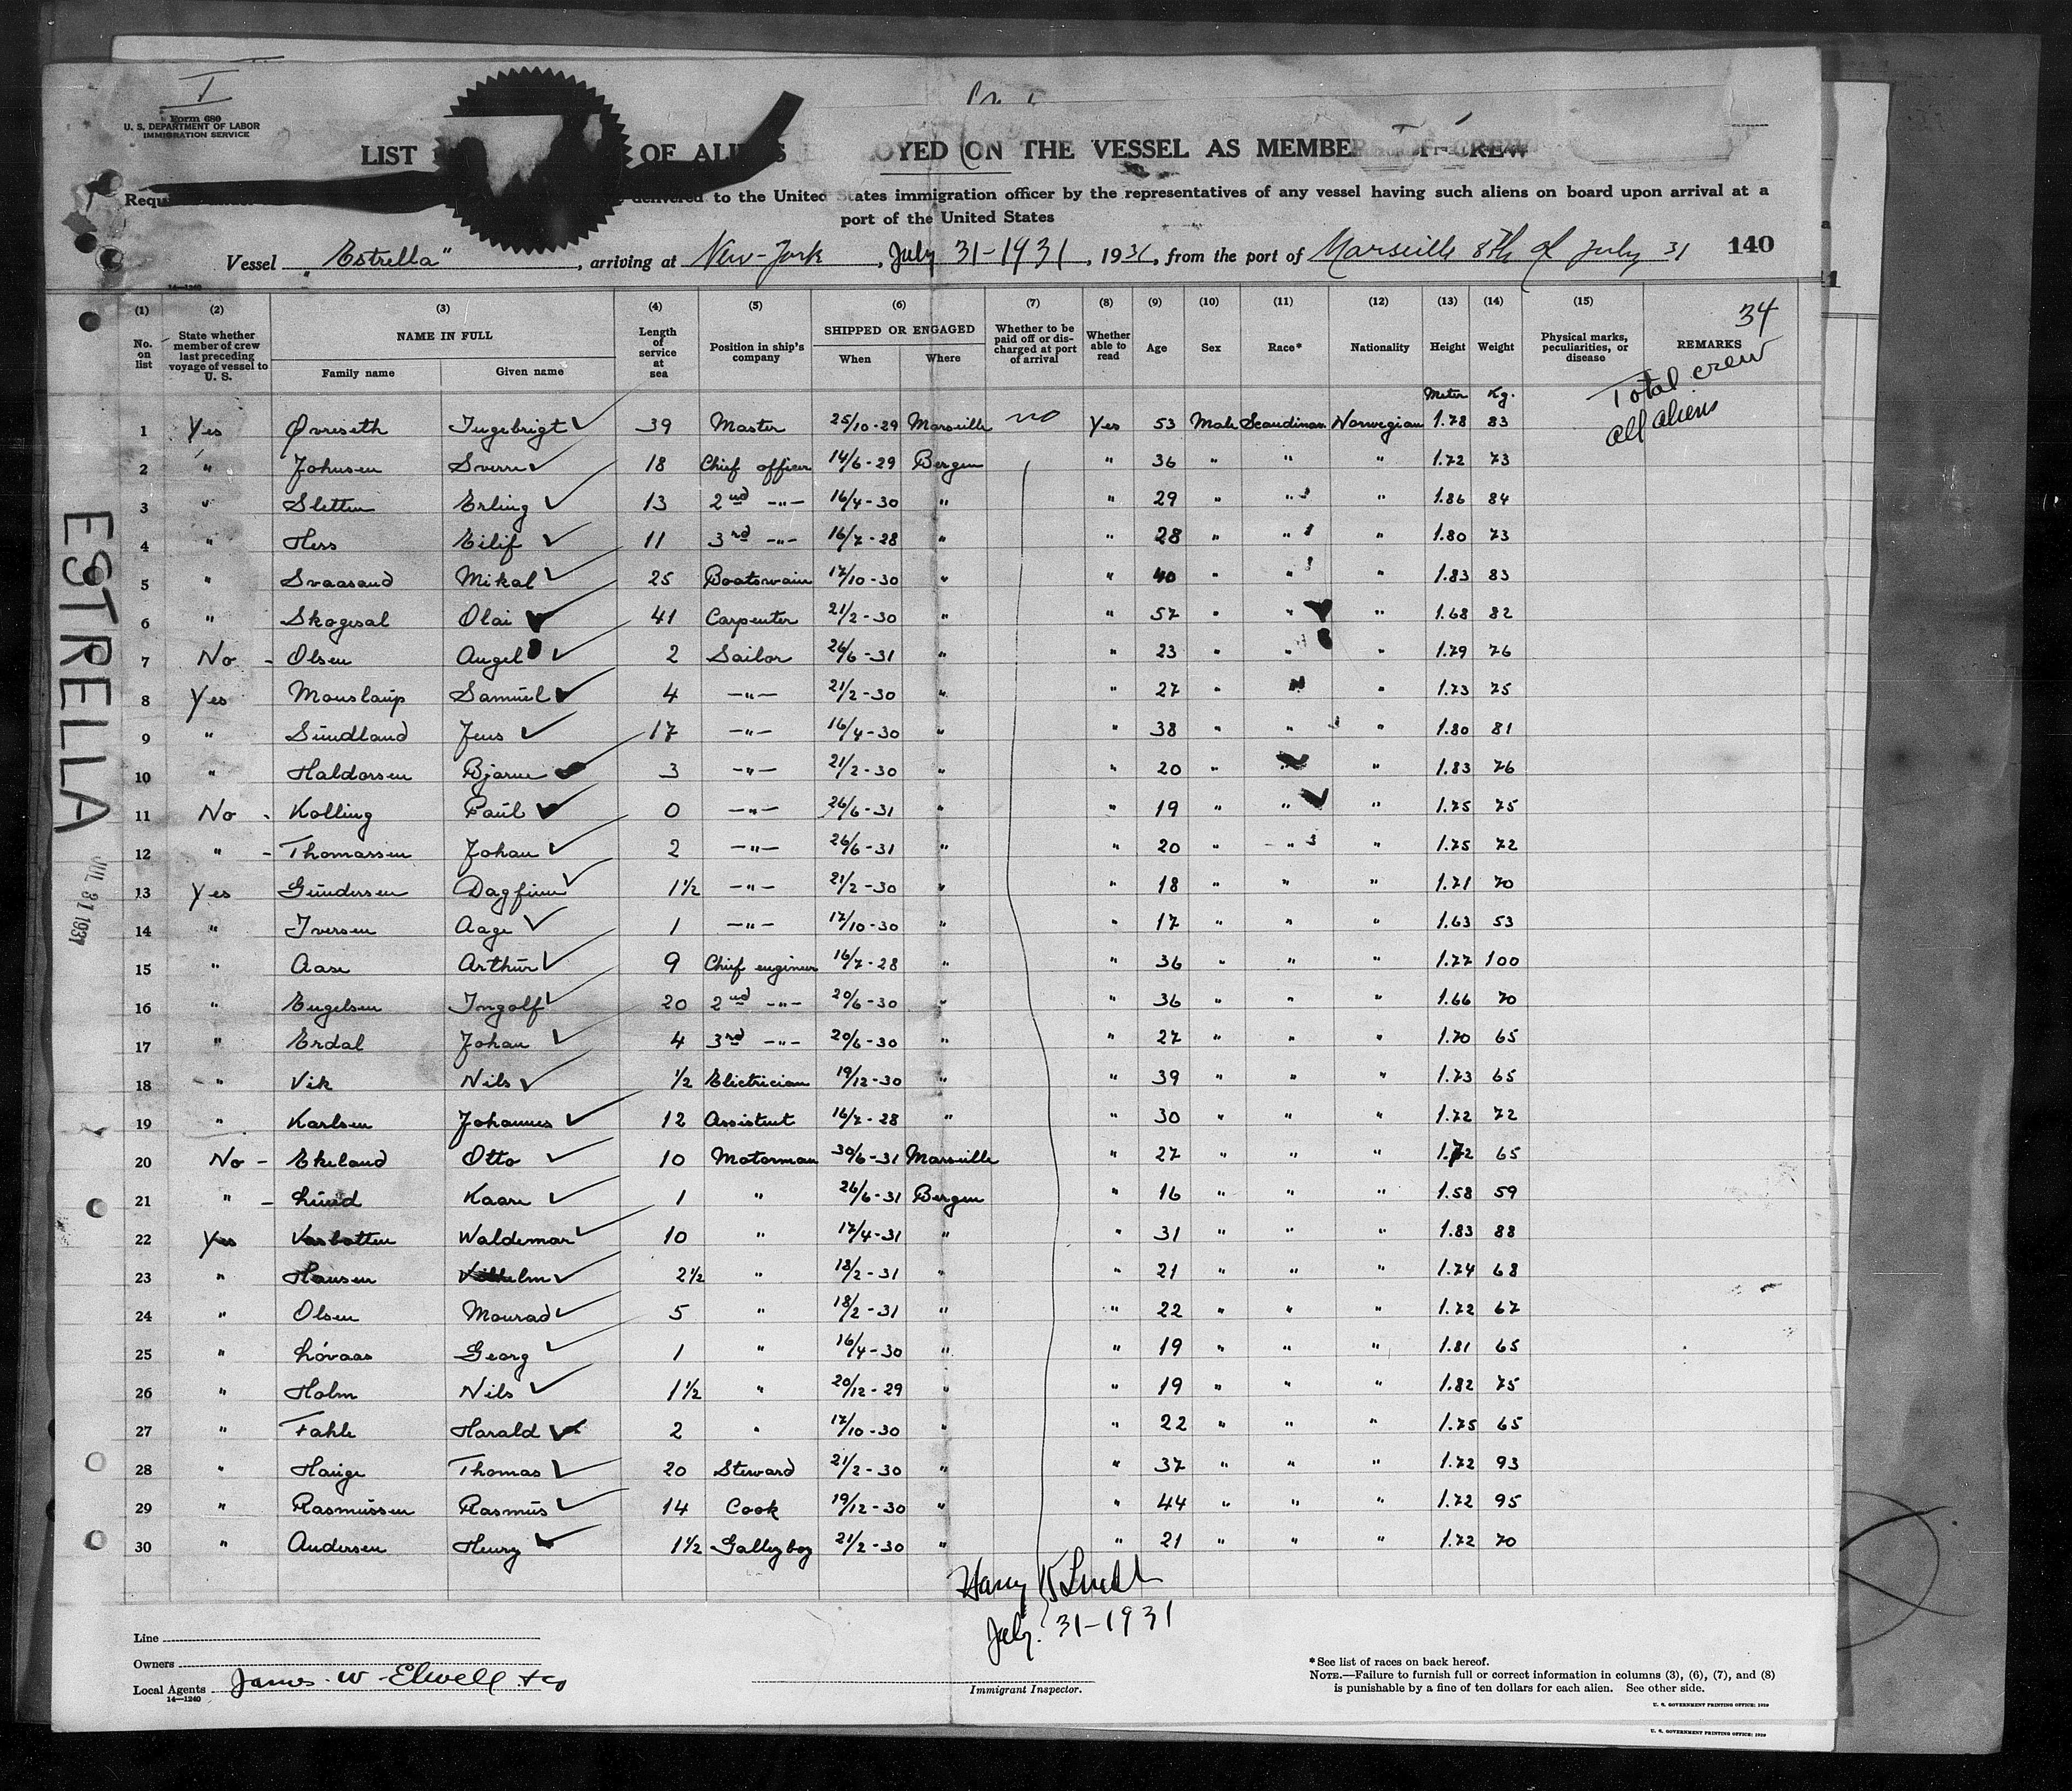 I
Form 680
U. S. DEPARTMENT OF LABOR
IMMIGRATION SERVICE
LIST OF ALIENS ON THE VESSEL AS MEMBERS CREW
delivered to the United States immigration officer by the representatives of any vessel having such aliens on board upon arrival at a
port of the United States
Vessel "Estrella", arriving at New-York, July 31-1931, 1931, from the port of Marseille 8th of July 31 140
14—1240
(1) (2) (3) (4) (5) (6) (7) (8) (9) (10) (11) (12) (13) (14) (15)
No. on list State whether member of crew last preceding voyage of vessel to U. S. NAME IN FULL Family name Given name Length of service at sea Position in ship's company SHIPPED OR ENGAGED When Where Whether to be paid off or discharged at port of arrival Whether able to read Age Sex Race* Nationality Height Weight Physical marks, peculiarities, or disease REMARKS
34
Total crew
all aliens
Meter Kg.
1 Yes Øvreseth Ingebrigt 39 Master 25/10-29 Marseille no Yes 53 Male Scandinav. Norwegian 1.78 83
2 " Johnsen Sverre 18 Chief officer 14/6-29 Bergen " 36 " " " 1.72 73
3 " Sletten Erling 13 2nd -"- 16/4-30 " " 29 " " " 1.86 84
4 " Hess Eilif 11 3rd -"- 16/7-28 " " 28 " " " 1.80 73
5 " Svaasand Mikal 25 Boatswain 17/10-30 " " 40 " " " 1.83 83
6 " Skogesal Olai 41 Carpenter 21/2-30 " " 57 " " " 1.68 82
7 No - Olsen Angel 2 Sailor 26/6-31 " " 23 " " " 1.79 76
8 Yes Monslaup Samuel 4 -"- 21/2-30 " " 27 " " " 1.73 75
9 " Sundland Jens 17 -"- 16/4-30 " " 38 " " " 1.80 81
10 " Haldorsen Bjarne 3 -"- 21/2-30 " " 20 " " 1.83 76
11 No - Kolling Paul 0 -"- 26/6-31 " " 19 " " " 1.75 75
12 " - Thomassen Johan 2 -"- 26/6-31 " " 20 " " " 1.75 72
13 Yes Gundersen Dagfinn 1½ -"- 21/2-30 " " 18 " " " 1.71 70
14 " Iversen Aage 1 -"- 17/10-30 " " 17 " " " 1.63 53
15 " Aase Arthur 9 Chief engineer 16/7-28 " " 36 " " " 1.77 100
16 " Engelsen Ingolf 20 2nd -"- 20/6-30 " " 36 " " " 1.66 70
17 " Erdal Johan 4 3rd -"- 20/6-30 " " 27 " " " 1.70 65
18 " Vik Nils ½ Electrician 19/12-30 " " 39 " " " 1.73 65
19 " Karlsen Johannes 12 Assistent 16/7-28 " " 30 " " " 1.72 72
20 No - Ekeland Otto 10 Motorman 30/6-31 Marseille " 27 " " " 1.72 65
21 " - Lund Kaare 1 " 26/6-31 Bergen " 16 " " " 1.58 59
22 Yes Vasbotten Waldemar 10 " 17/4-31 " " 31 " " " 1.83 88
23 " Hansen Vilhelm 2½ " 18/2-31 " " 21 " " " 1.74 68
24 " Olsen Monrad 5 " 18/2-31 " " 22 " " " 1.72 67
25 " Lóvaas Georg 1 " 16/4-30 " " 19 " " " 1.81 65
26 " Holm Nils 1½ " 20/12-29 " " 19 " " " 1.82 75
27 " Fahle Harald 2 " 17/10-30 " " 22 " " " 1.75 65
28 " Hauge Thomas 20 Steward 21/2-30 " " 37 " " " 1.72 93
29 " Rasmussen Rasmus 14 Cook 19/12-30 " " 44 " " " 1.72 95
30 " Andersen Henry 1½ Galleyboy 21/2-30 " " 21 " " " 1.72 70
ESTRELLA
JUL 31 1931
Harry
July 31-1931
Line
Owners
Local Agents James W Elwell & Co
14—1240
Immigrant Inspector.
*See list of races on back hereof.
NOTE.—Failure to furnish full or correct information in columns (3), (6), (7), and (8)
is punishable by a fine of ten dollars for each alien. See other side.
U. S. GOVERNMENT PRINTING OFFICE: 1929
U. S. GOVERNMENT PRINTING OFFICE: 1929